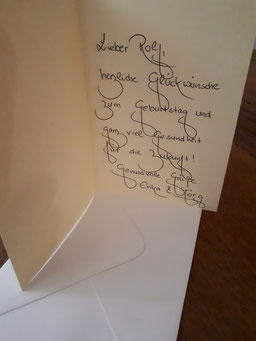 Lieber Rolf,
herzliche Glückwünsche
zum Geburtstag und
ganz viel Gesundheit
für die Zukunft!
Genussvolle Grüße
Erika & Jörg